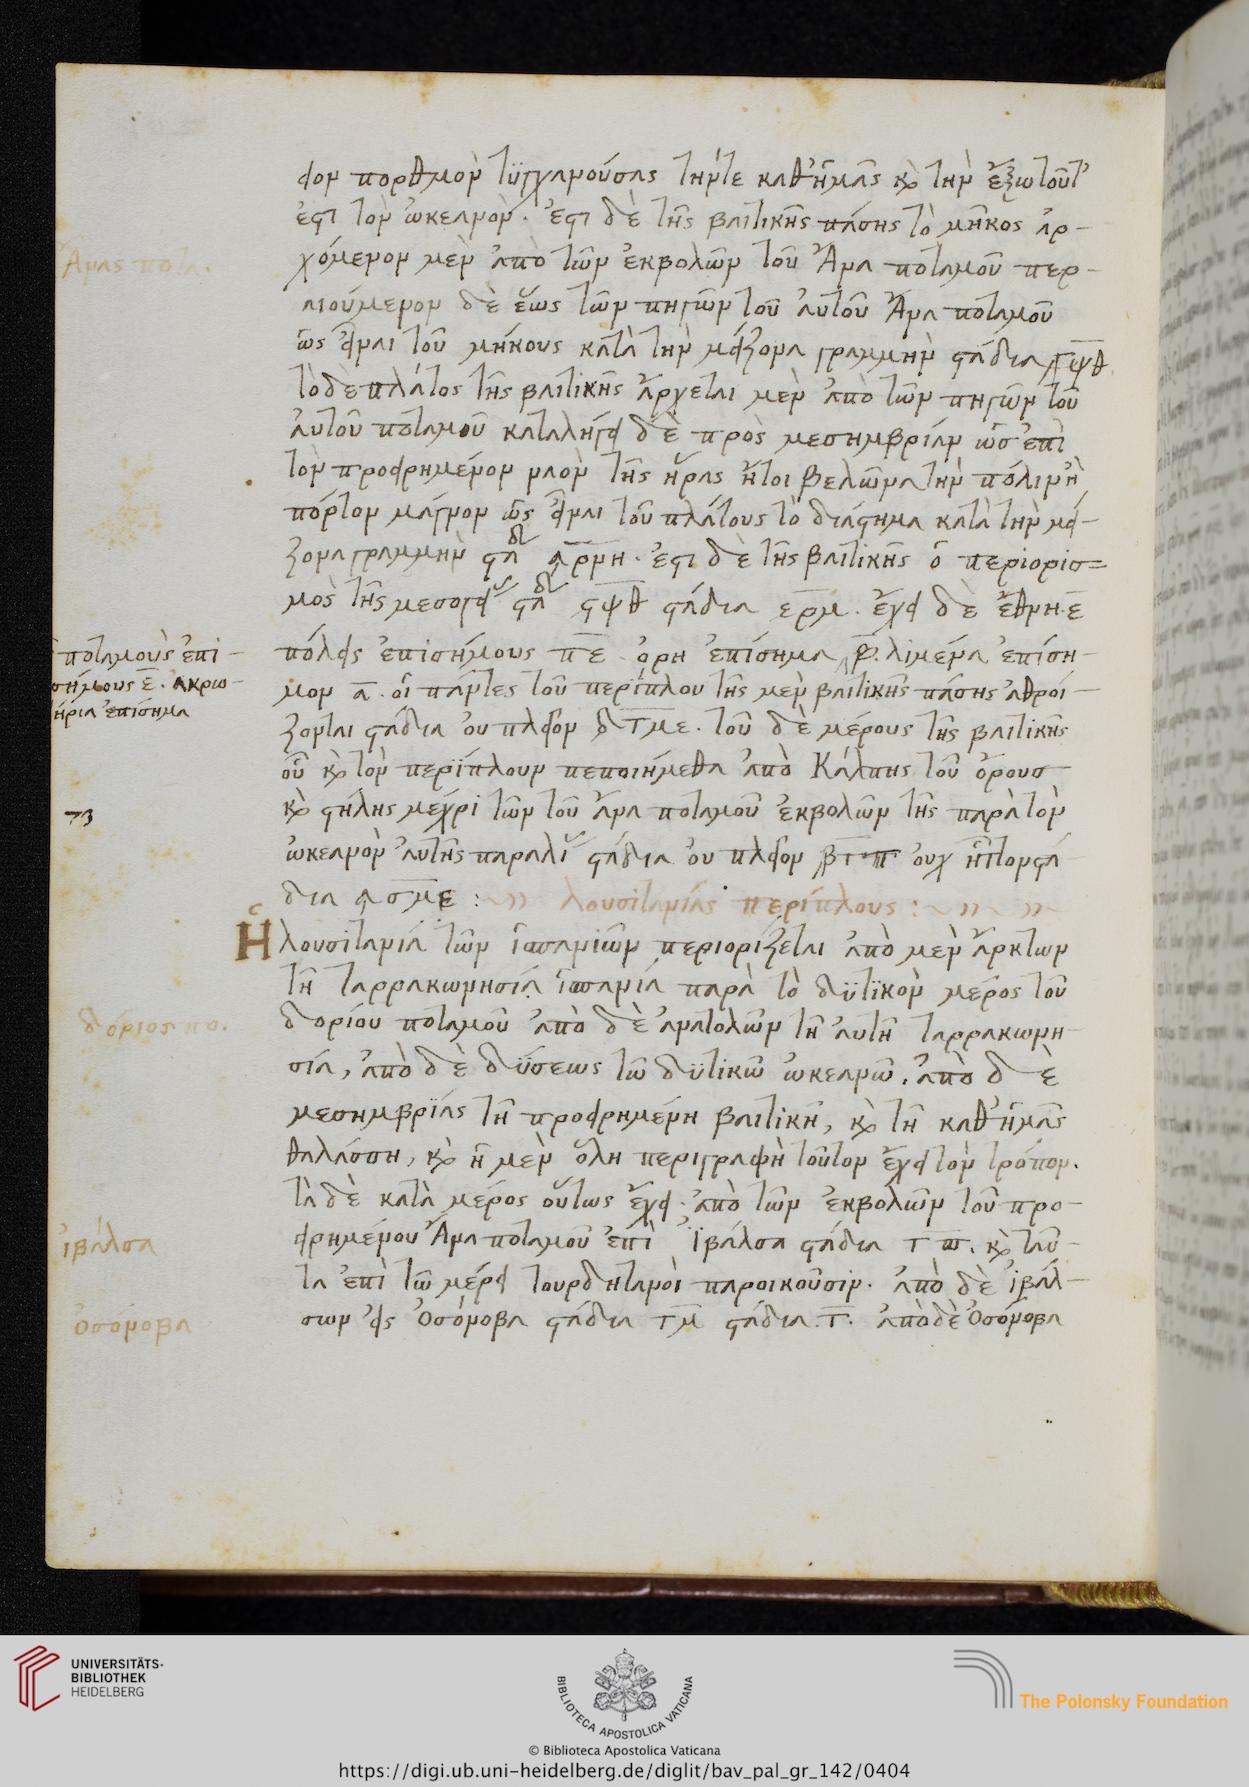 ειον πορθμὸν τυγχανούσας τήν τε καθ' ἡμᾶς κὶ τὴν ἔξω τοῦτ'
ἐστὶ τὸν ὠκεανόν. ἔστι δὲ τῆς βαιτικῆς πάσης τὸ μῆκος ἀρ-
Ἄνας ποτα.
χόμενον μὲν ἀπὸ τῶν ἐκβολῶν τοῦ Ἄνα ποταμοῦ περ-
αιούμενον δὲ ἕως τῶν πηγῶν τοῦ αὐτοῦ Ἄνα ποταμοῦ
ὡς εἶναι τοῦ μήκους κατὰ τὴν μείζονα γραμμὴν στάδια ͵γψθ
τὸ δὲ πλάτος τῆς βαιτικῆς ἄρχεται μὲν ἀπὸ τῶν πηγῶν τοῦ
αὐτοῦ ποταμοῦ καταλήγει δὲ πρὸς μεσημβρίαν ὡς ἐπὶ
τὸν προειρημένον ναὸν τῆς ἥρας ἤτοι βελῶνα τὴν πόλιν ἢ
πόρτον μάγνον ὡς εἶναι τοῦ πλάτους τὸ διάστημα κατὰ τὴν μεί-
ζονα γραμμὴν σταδ. ἔστι δὲ τῆς βαιτικῆς ὁ περιορισ-
μὸς τῆς μεσογεί σταδ ϛψθ στάδια ερμ. ἔχει δὲ ἔθνη ε
ποταμοὺς ἐπι-
σήμους ε. ἀκρω-
τήρια ἐπίσημα
πόλεις ἐπισήμους πε. ὄρη ἐπίσημα β. λιμένα ἐπίση-
μον α. οἱ πάντες τοῦ περίπλου τῆς μὲν βαιτικῆς πάσης ἀθροί-
ζονται στάδια οὐ πλεῖον δτμε. τοῦ δὲ μέρους τῆς βαιτικῆς
οὗ κὶ τὸν περίπλουν πεποιήμεθα ἀπὸ Κάλπης τοῦ ὄρους
73
κὶ στήλης μέχρι τῶν τοῦ ἄνα ποταμοῦ ἐκβολῶν τῆς παρὰ τὸν
ὠκεανὸν αὐτῆς παραλί στάδια οὐ πλεῖον βτπ οὐχ ἧττον στά
δια ασμε : λουσιτανίας περίπλους :
Ἡ λουσιτανία τῶν ἱσπανιῶν περιορίζεται ἀπὸ μὲν ἄρκτων
τῆ ταρρακωνησία ἱσπανία παρὰ τὸ δυτικὸν μέρος τοῦ
δόριος πο.
δορίου ποταμοῦ ἀπὸ δὲ ἀνατολῶν τῆ αὐτῆ ταρρακωνη
σία, ἀπὸ δὲ δύσεως τῶ δυτικῶ ὠκεανῶ. ἀπὸ δὲ
μεσημβρίας τῆ προειρημένη βαιτικῆ, κὶ τῆ καθ' ἡμᾶς
θαλάσση, κὶ ἡ μὲν ὅλη περιγραφὴ τοῦτον ἔχει τὸν τρόπον.
τὰ δὲ κατὰ μέρος οὕτως ἔχει. ἀπὸ τῶν ἐκβολῶν τοῦ προ-
ἰβάλσα
ειρημένου Ἄνα ποταμοῦ ἐπὶ Ἰβάλσα στάδια τπ. κὶ ταῦ-
τα ἐπὶ τῶ μέρει τουρδητανοὶ παροικοῦσιν. ἀπὸ δὲ ἰβάλ-
Ὀσόνοβα
σων εἰς Ὀσόνοβα στάδια τμ στάδια τ. ἀπὸ δὲ Ὀσόνοβα
UNIVERSITÄTS-
BIBLIOTHEK
HEIDELBERG
BIBLIOTECA APOSTOLICA VATICANA
The Polonsky Foundation
© Biblioteca Apostolica Vaticana
https://digi.ub.uni-heidelberg.de/diglit/bav_pal_gr_142/0404